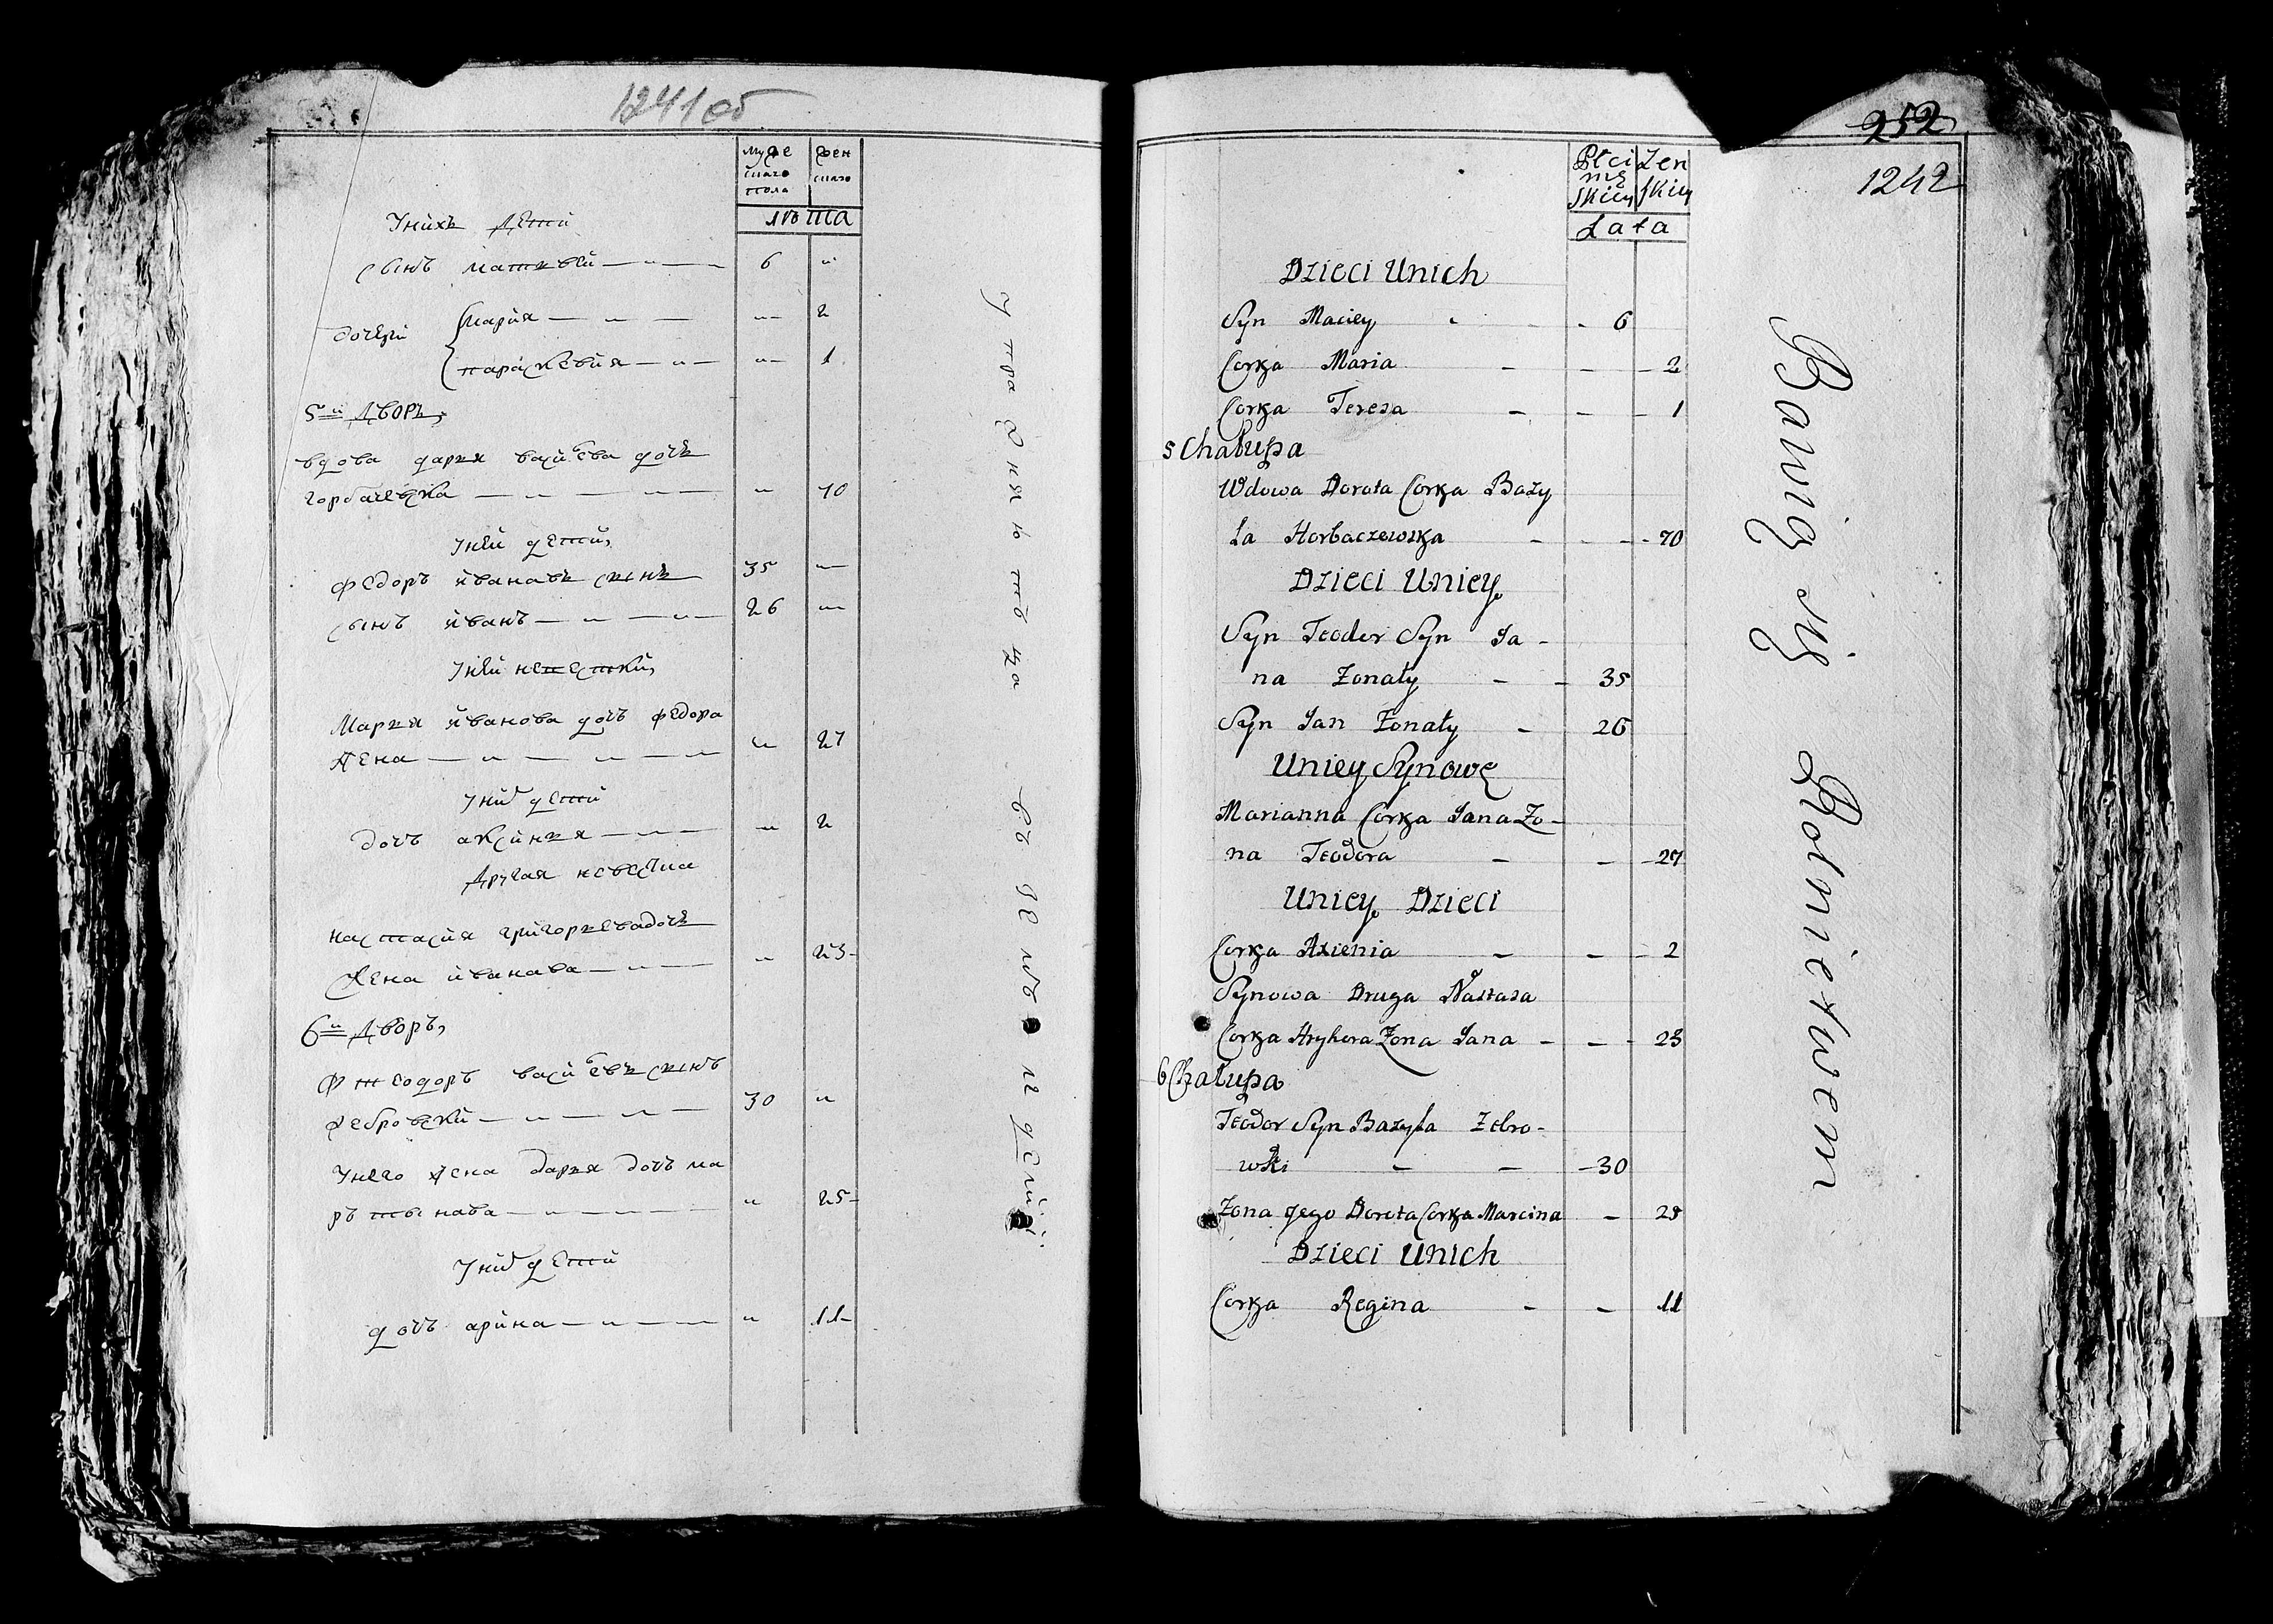 1241об
Мужескаго пола
Женскаго
Лѣта
У нихъ дети
сынъ матвей — " — 6 "
дочери { Мария — " — " 2
параскевия — " — " 1
5й Дворъ,
вдова дарья васильева дочь
горбачевска — " — " — " 70
У ней дети,
федоръ ивановъ сынъ 35 —
сынъ иванъ — " — " — 26 —
У ней невестки,
Марья иванова дочь федора
жена — " — " — " 27
У них дети
дочь аксинья — " — " 2
Другая невестка
настасия григорьева дочь
жена иванова — " — " 23
6й Дворъ,
Фтеодоръ васильевъ сынъ
жебровский — " — " — 30 "
У него жена дарья дочь ма
ртынова — " — " — " 25
У них дети
дочь арина — " — " — " 11
упражняютца въ земледелии
252
1242
Płci męskiey
Żenskiey
Lata
Dzieci Unich
Syn Maciey - 6
Corka Maria - - 2
Corka Teresa - - 1
5 Chałupa
Wdowa Dorota Corka Bazy
la Horbaczewska - - 70
Dzieci Uniey
Syn Teodor Syn Ja-
na Zonaty - - 35
Syn Jan Zonaty - 26
Uniey Synowę
Marianna Corka Jana Zo-
na Teodora - - 27
Uniey Dzieci
Corka Axienia - - 2
Synowa Druga Nastasa
Corka Hryhora Zona Jana - - 23
6 Chałupa
Teodor Syn Bazyla Zebro-
wski - - 30
Zona Jego Dorota Corka Marcina - 25
Dzieci Unich
Corka Regina - - 11
Bawią się Rolnictwem